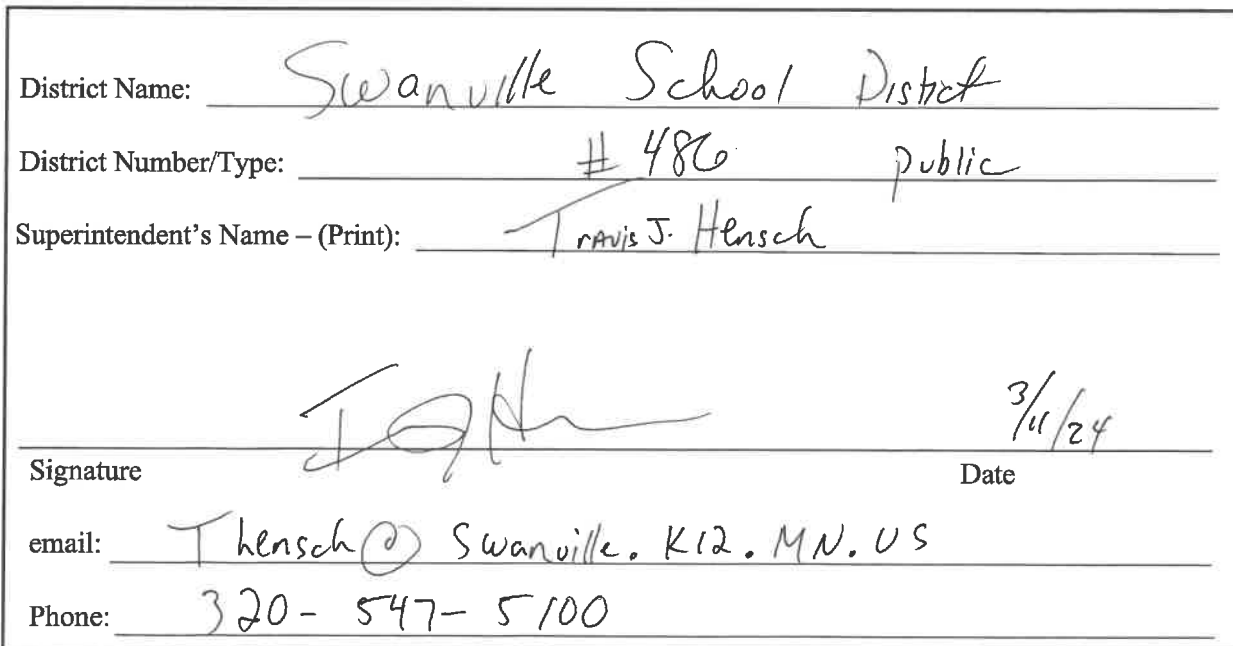 District Name: Swanville School Distict
District Number/Type: # 486 public
Superintendent's Name – (Print): Travis J. Hensch
3/11/24
Signature Date
email: Thensch@Swanville.K12.MN.US
Phone: 320-547-5100